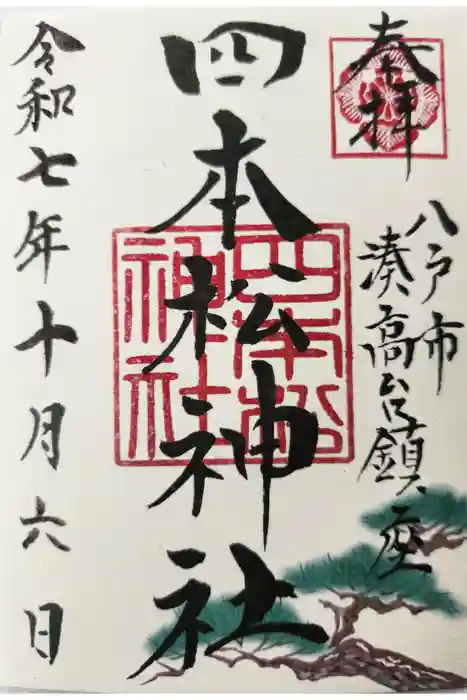 奉拝
八戸市
湊高台鎮座
四本松神社
四本松
神社
令和七年十月六日